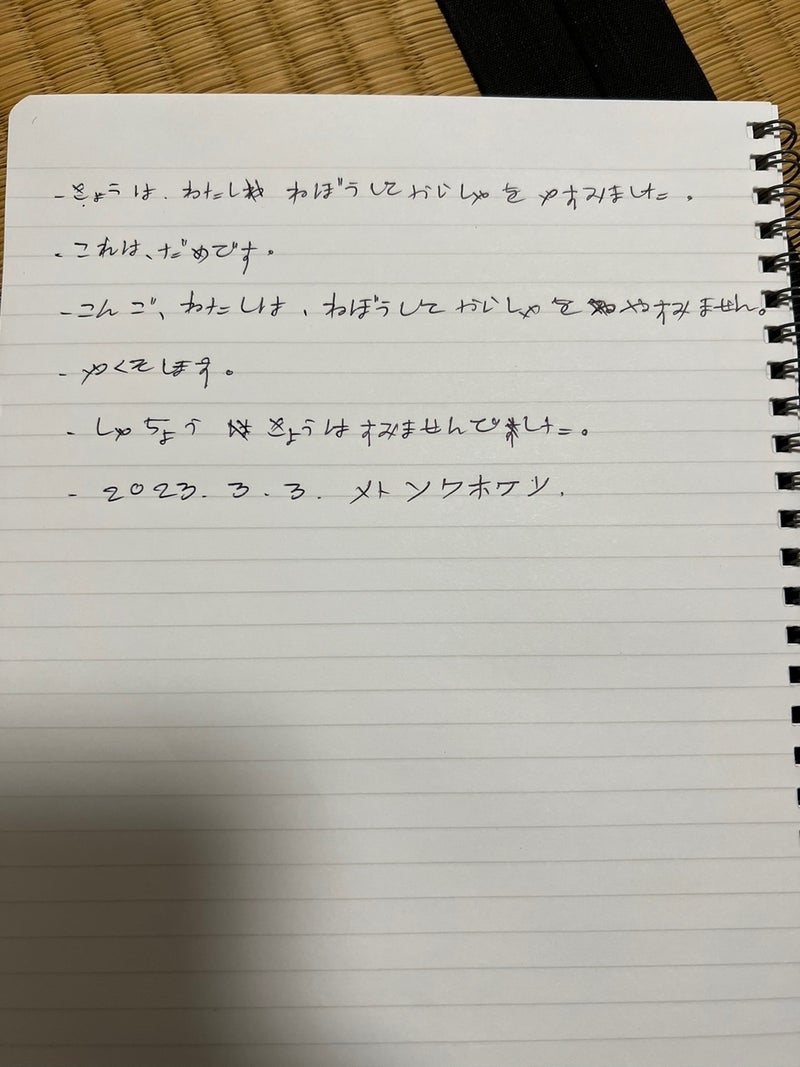 - きょうは、わたしは ねぼうして かいしゃを やすみました。
- これは、だめです。
- こんご、わたしは、ねぼうして かいしゃを やすみません。
- やくそします。
- しゃちょう きょうは すみませんでした。
- 2023.3.3.